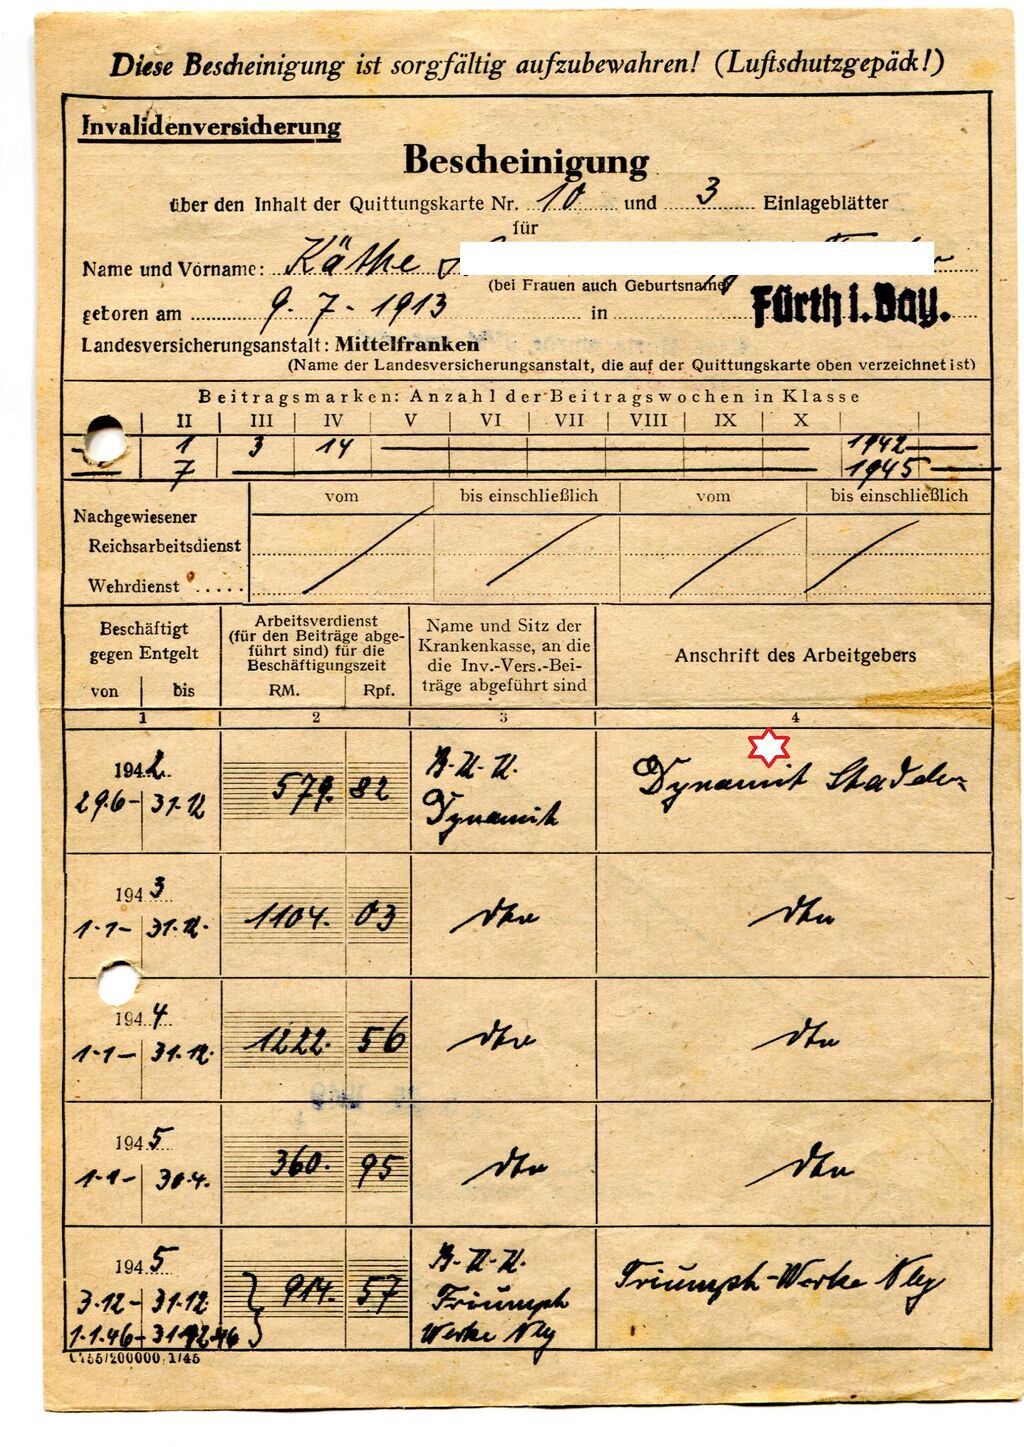 Diese Bescheinigung ist sorgfältig aufzubewahren! (Luftschutzgepäck!)
Invalidenversicherung
Bescheinigung
über den Inhalt der Quittungskarte Nr. 10 und 3 Einlageblätter
für
Name und Vorname: Käthe
(bei Frauen auch Geburtsname)
geboren am 9.7-1913 in Fürth i. Bay.
Landesversicherungsanstalt: Mittelfranken
(Name der Landesversicherungsanstalt, die auf der Quittungskarte oben verzeichnet ist)
Beitragsmarken: Anzahl der Beitragswochen in Klasse
II III IV V VI VII VIII IX X
1 3 14 1942
7 1945
vom bis einschließlich vom bis einschließlich
Nachgewiesener
Reichsarbeitsdienst
Wehrdienst .....
Beschäftigt gegen Entgelt
von bis
Arbeitsverdienst
(für den Beiträge abge-
führt sind) für die
Beschäftigungszeit
RM. Rpf.
Name und Sitz der
Krankenkasse, an die
die Inv.-Vers.-Bei-
träge abgeführt sind
Anschrift des Arbeitgebers
1 2 3 4
1942
29.6- 31.12 579. 82 B.K.K. Dynamit Dynamit Stadeln
1943
1.1- 31.12. 1104. 03 dto dto
1944
1-1- 31.12. 1222. 56 dto dto
1945
1-1- 30.4. 360. 95 dto dto
1945
3.12- 31.12. 914. 57 B.K.K. Triumph Werke Nbg Triumph-Werke Nbg
1.1.46- 46
200000. 1/45